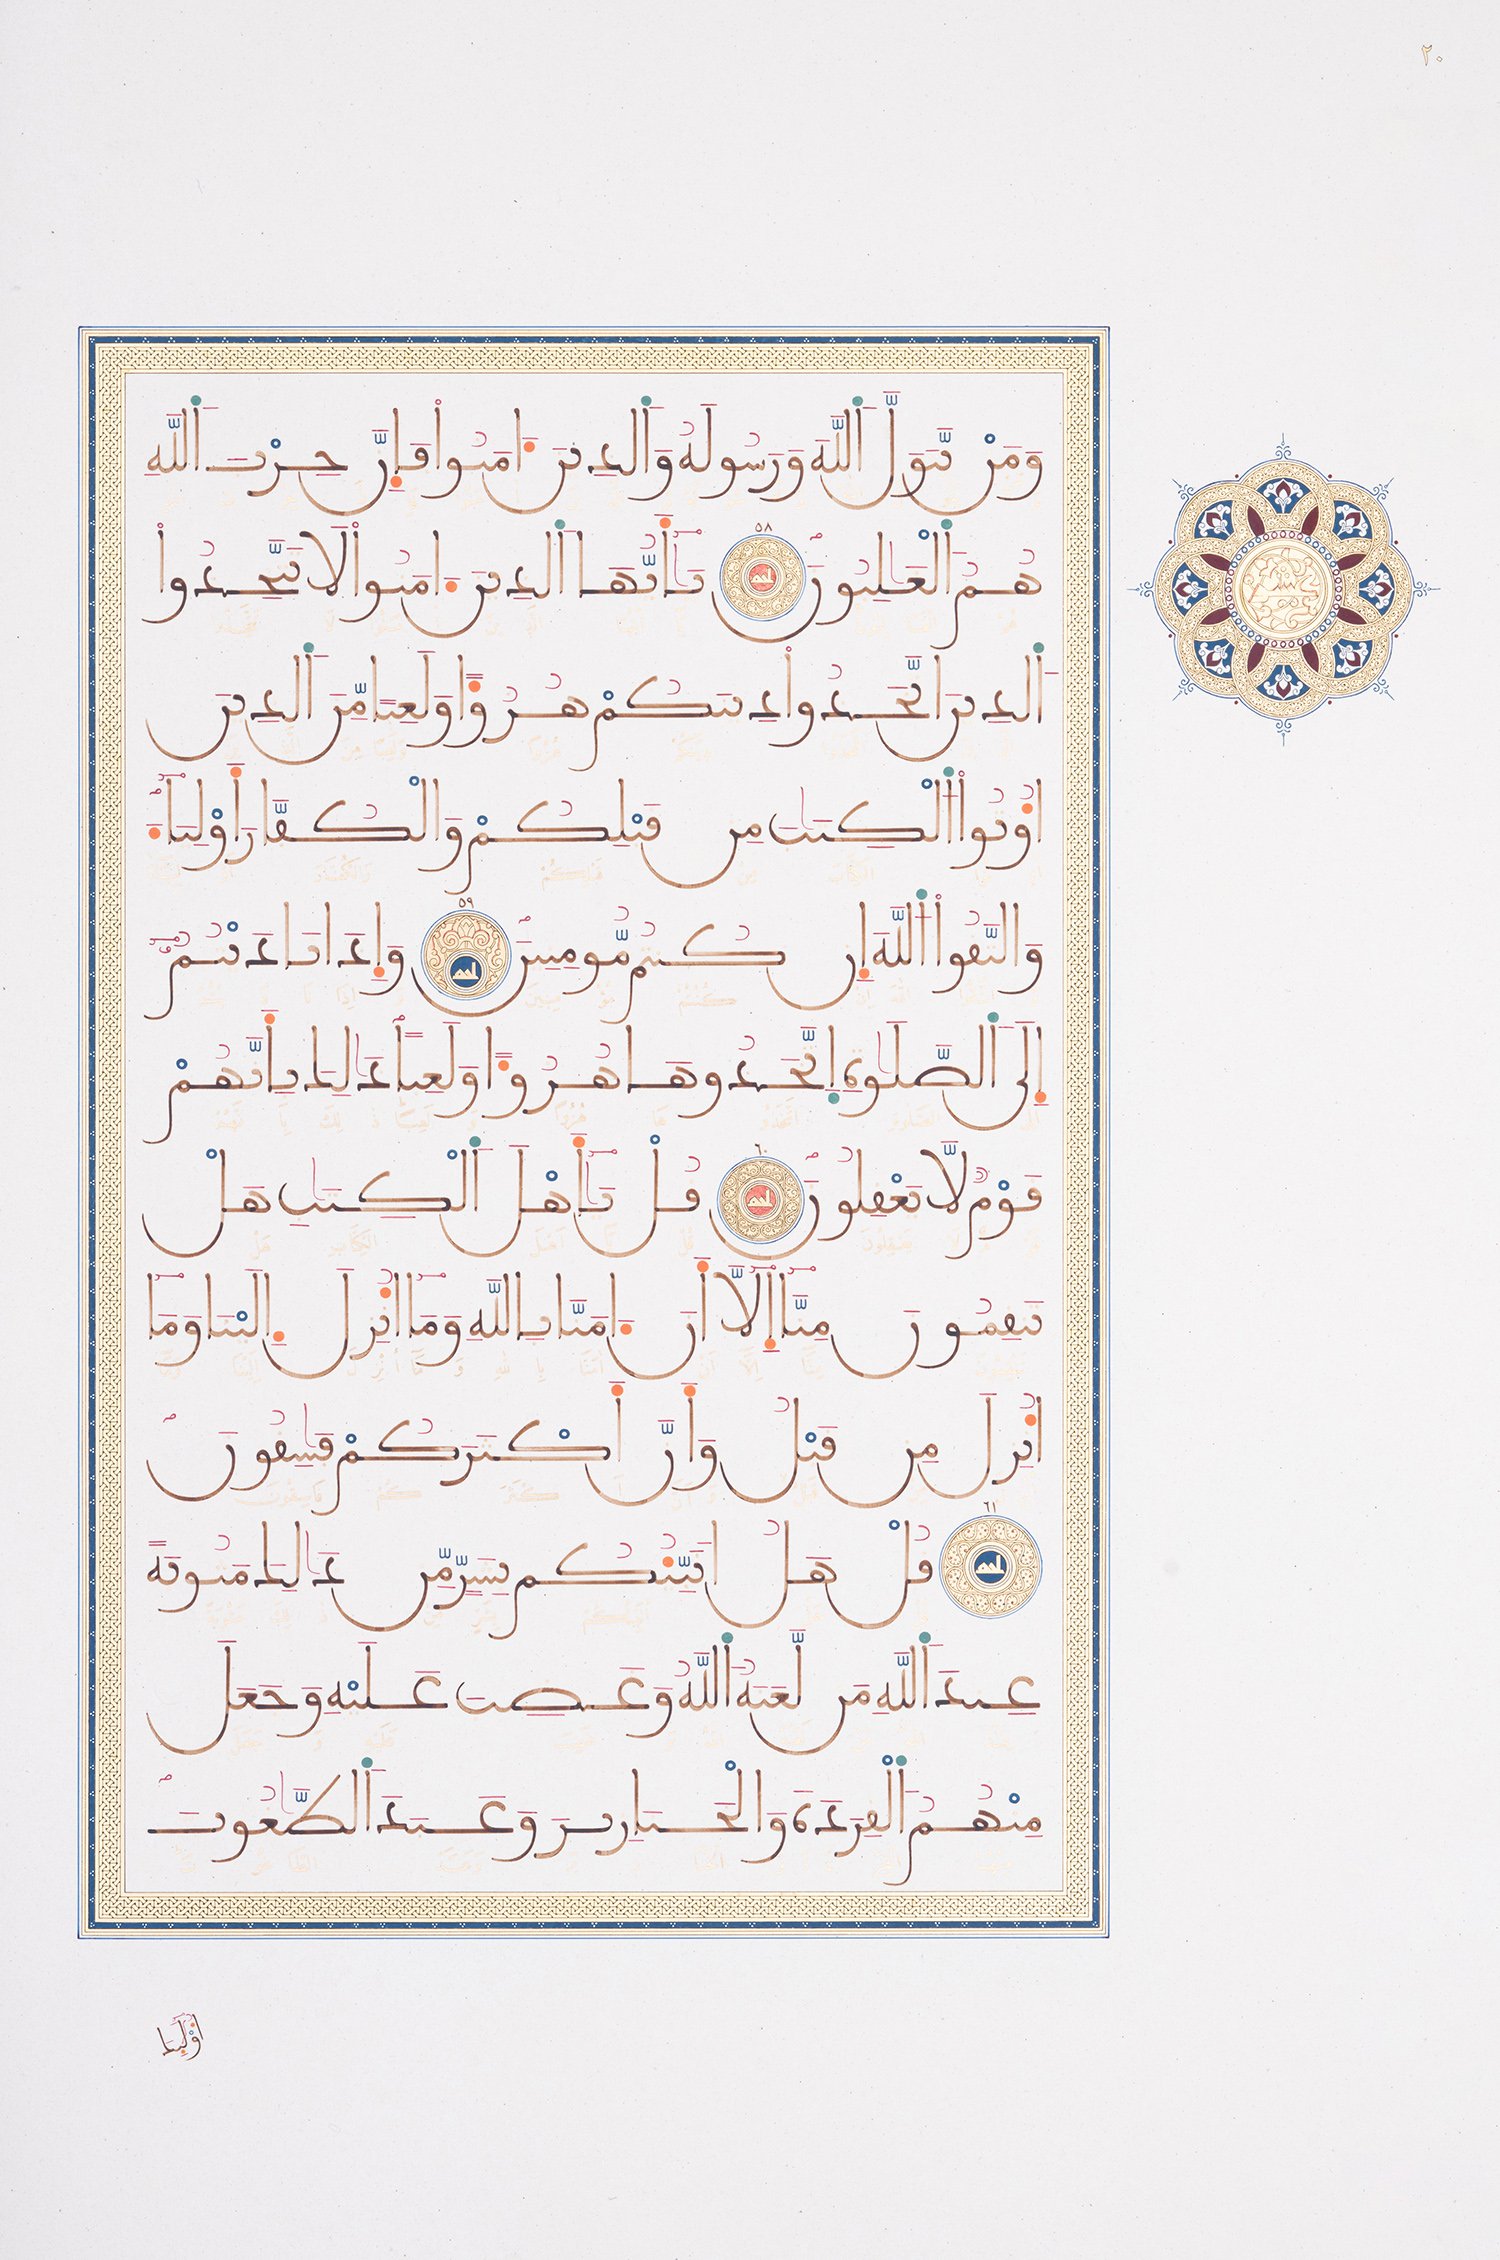 ٢٠
وَمَنْ يَّتَوَلَّ اَللَّهَ وَرَسُولَهُ وَالذِينَ ءَامَنُواْ فَإِنَّ حِزْبَ اَللَّهِ
هُمُ اُلْغَٰلِبُونَ ٥٨ يَٰٓأَيُّهَا اَلذِينَ ءَامَنُواْ لَا تَتَّخِذُواْ
اُلذِينَ اَتَّخَذُواْ دِينَكُمْ هُزُؤاً وَلَعِباً مِّنَ اَلذِينَ
أُوتُواْ اُلْكِتَٰبَ مِن قَبْلِكُمْ وَالْكُفَّارَ أَوْلِيَآءَ
وَاتَّقُواْ اُللَّهَ إِن كُنتُم مُّومِنِينَ ٥٩ وَإِذَا نَادَيْتُمُۥٓ
إِلَى اَلصَّلَوٰةِ اِتَّخَذُوهَا هُزُؤاً وَلَعِباً ذَٰلِكَ بِأَنَّهُمْ
قَوْمٌ لَّا يَعْقِلُونَ ٦٠ قُلْ يَٰٓأَهْلَ اَلْكِتَٰبِ هَلْ
تَنقِمُونَ مِنَّآ إِلَّآ أَنْ ءَامَنَّا بِاللَّهِ وَمَآ أُنزِلَ إِلَيْنَا وَمَآ
أُنزِلَ مِن قَبْلُ وَأَنَّ أَكْثَرَكُمْ فَٰسِقُونَ
٦١ قُلْ هَلُ ا۟نَبِّئُكُم بِشَرٍّ مِّن ذَٰلِكَ مَثُوبَةً
عِندَ اَللَّهِ مَن لَّعَنَهُ اُللَّهُ وَغَضِبَ عَلَيْهِ وَجَعَلَ
مِنْهُمُ اُلْقِرَدَةَ وَالْخَنَازِيرَ وَعَبَدَ اَلطَّٰغُوتَ